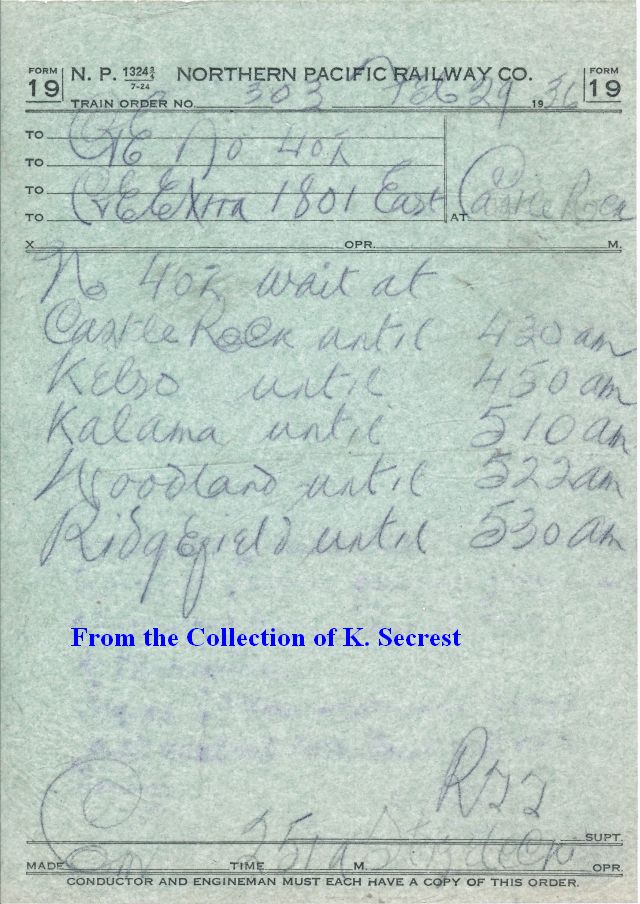 FORM 19 N. P. 1324 3/4 7-24 NORTHERN PACIFIC RAILWAY CO. FORM 19
TRAIN ORDER NO. 303 Feb 29 1936
TO C&E
TO No 402
TO C&E Extra 1801 East
TO AT Castle Rock
X OPR. M.
No 402 wait at
Castle Rock until 430 am
Kelso until 450 am
Kalama until 510 am
Woodland until 522 am
Ridgefield until 530 am
From the Collection of K. Secrest
SUPT.
MADE Com TIME 351 a M. OPR.
CONDUCTOR AND ENGINEMAN MUST EACH HAVE A COPY OF THIS ORDER.